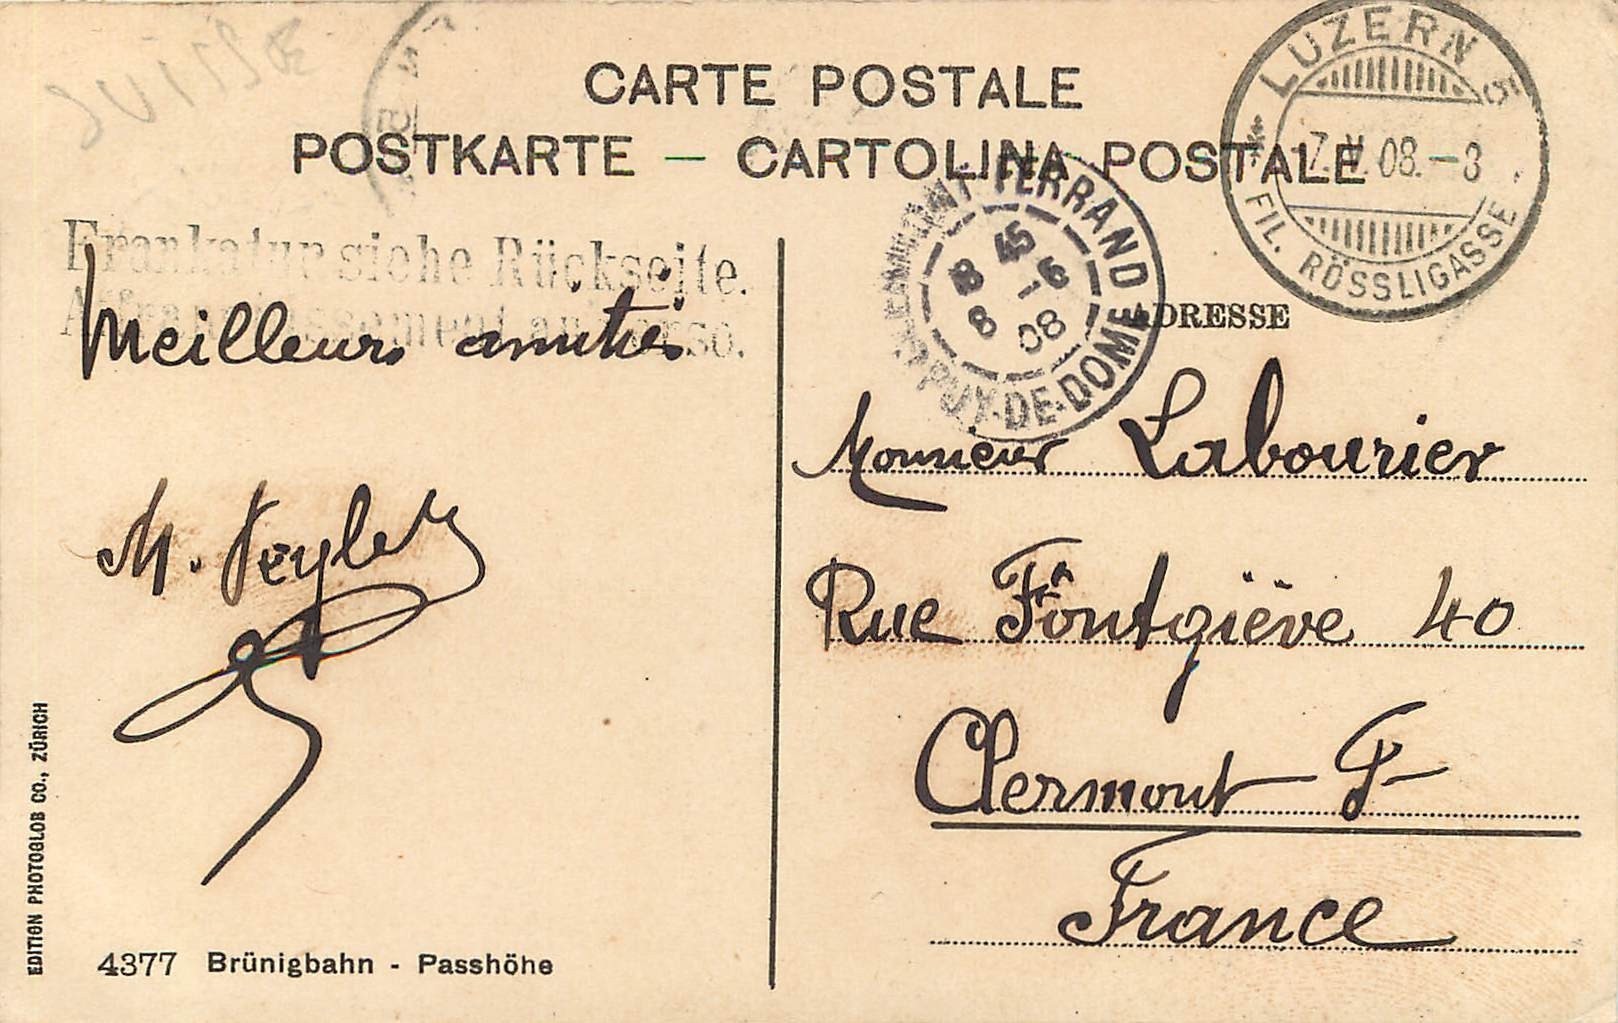 SUISSE
CARTE POSTALE
POSTKARTE – CARTOLINA POSTALE
LUZERN 5
7.V.08.-8
FIL. RÖSSLIGASSE
Frankatur siehe Rückseite.
Affranchissement au verso.
CLERMONT FERRAND
18 45
8 -6
08
PUY-DE-DOME
Meilleures amitiés
ADRESSE
Monsieur Labourier
Rue Fôntgiëve 40
Clermont F
France
EDITION PHOTOGLOB CO., ZÜRICH
4377 Brünigbahn - Passhöhe